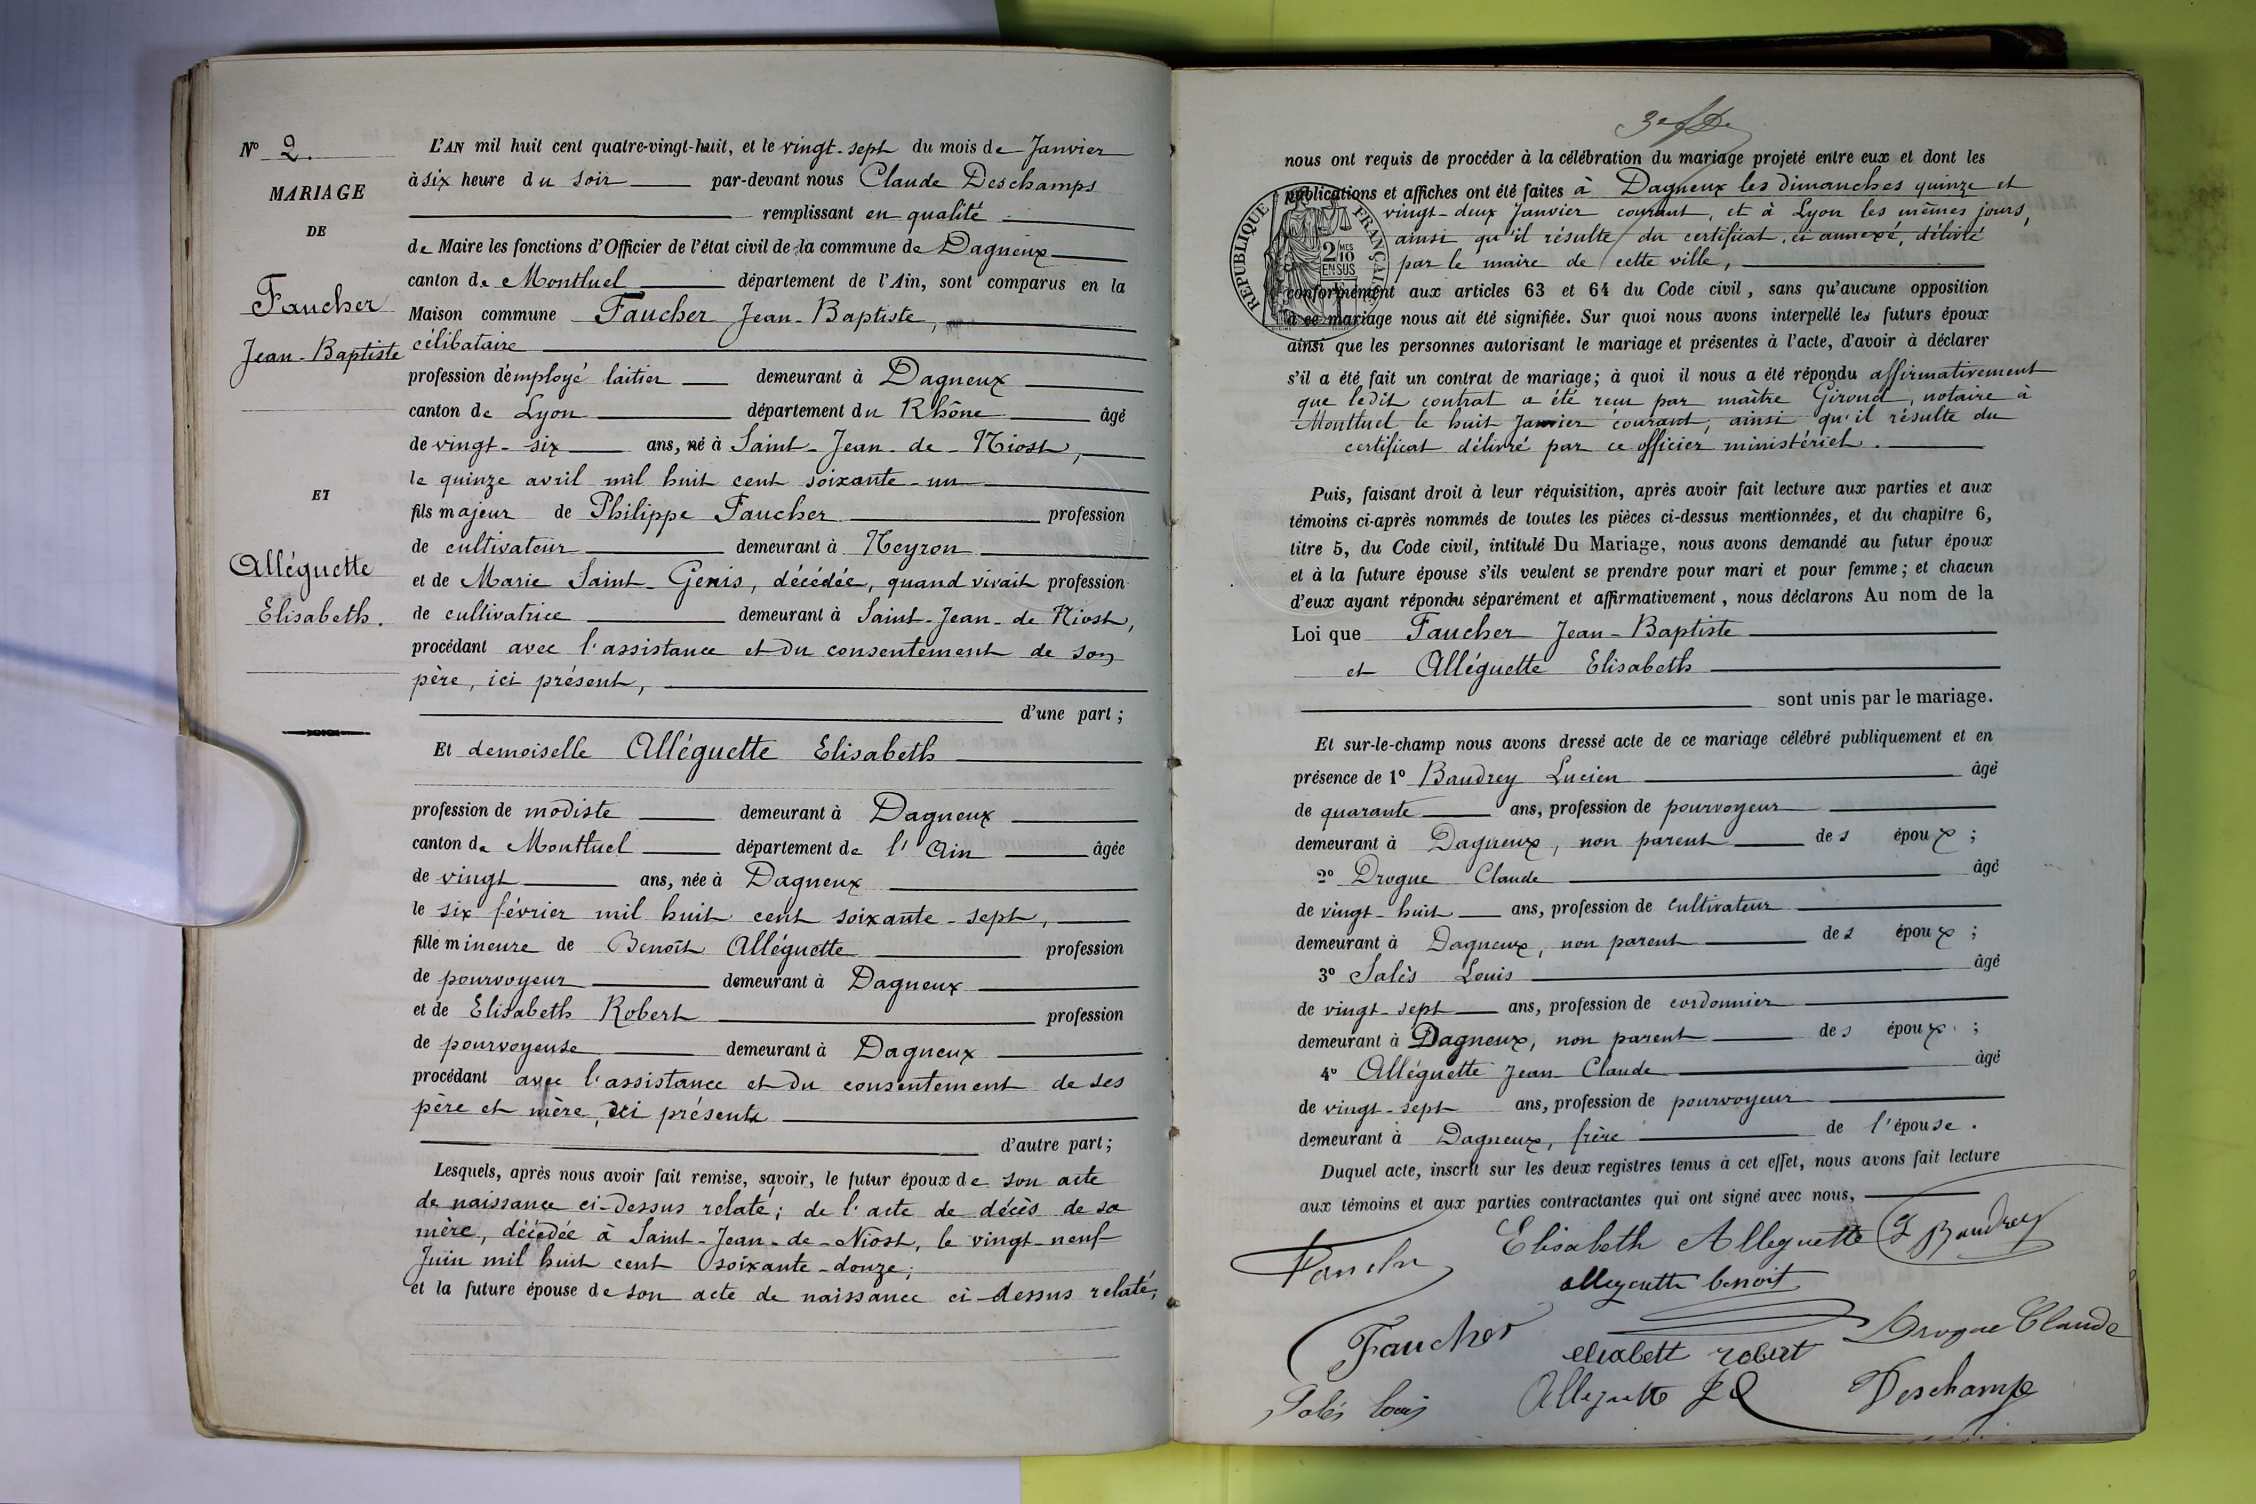 N° 2.
MARIAGE
DE
Faucher
Jean-Baptiste
ET
Alléguette
Elisabeth.
L'AN mil huit cent quatre-vingt-huit, et le vingt-sept du mois de Janvier
à six heure du soir par-devant nous Claude Deschamps
remplissant en qualité
de Maire les fonctions d'Officier de l'état civil de la commune de Dagneux
canton de Montluel département de l'Ain, sont comparus en la
Maison commune Faucher Jean-Baptiste,
célibataire
profession d'employé laitier demeurant à Dagneux
canton de Lyon département du Rhône âgé
de vingt-six ans, né à Saint-Jean-de-Niost,
le quinze avril mil huit cent soixante-un
fils majeur de Philippe Faucher profession
de cultivateur demeurant à Neyron
et de Marie Saint-Genis, décédée, quand vivait profession
de cultivatrice demeurant à Saint-Jean-de Niost,
procédant avec l'assistance et du consentement de son
père, ici présent,
d'une part;
Et demoiselle Alléguette Elisabeth
profession de modiste demeurant à Dagneux
canton de Montluel département de l'Ain âgée
de vingt ans, née à Dagneux
le six février mil huit cent soixante-sept,
fille mineure de Benoît Alléguette profession
de pourvoyeur demeurant à Dagneux
et de Elisabeth Robert profession
de pourvoyeuse demeurant à Dagneux
procédant avec l'assistance et du consentement de ses
père et mère, ici présents
d'autre part;
Lesquels, après nous avoir fait remise, savoir, le futur époux de son acte
de naissance ci-dessus relaté; de l'acte de décès de sa
mère, décédée à Saint-Jean-de-Niost, le vingt-neuf
Juin mil huit cent soixante-douze;
et la future épouse de son acte de naissance ci-dessus relaté,
nous ont requis de procéder à la célébration du mariage projeté entre eux et dont les
publications et affiches ont été faites à Dagneux les dimanches quinze et
vingt-deux Janvier courant, et à Lyon les mêmes jours,
ainsi qu'il résulte du certificat, ci annexé, délivré
par le maire de cette ville,
RÉPUBLIQUE FRANÇAISE
2 MES
10
EN SUS
conformément aux articles 63 et 64 du Code civil, sans qu'aucune opposition
à ce mariage nous ait été signifiée. Sur quoi nous avons interpellé les futurs époux
ainsi que les personnes autorisant le mariage et présentes à l'acte, d'avoir à déclarer
s'il a été fait un contrat de mariage; à quoi il nous a été répondu affirmativement
que ledit contrat a été reçu par maître Giroud, notaire à
Montluel le huit Janvier courant, ainsi qu'il résulte du
certificat délivré par ce officier ministériel.
Puis, faisant droit à leur réquisition, après avoir fait lecture aux parties et aux
témoins ci-après nommés de toutes les pièces ci-dessus mentionnées, et du chapitre 6,
titre 5, du Code civil, intitulé Du Mariage, nous avons demandé au futur époux
et à la future épouse s'ils veulent se prendre pour mari et pour femme; et chacun
d'eux ayant répondu séparément et affirmativement, nous déclarons Au nom de la
Loi que Faucher Jean-Baptiste
et Alléguette Elisabeth
sont unis par le mariage.
Et sur-le-champ nous avons dressé acte de ce mariage célébré publiquement et en
présence de 1° Baudrey Lucien âgé
de quarante ans, profession de pourvoyeur
demeurant à Dagneux, non parent des époux;
2° Drogue Claude âgé
de vingt-huit ans, profession de cultivateur
demeurant à Dagneux, non parent des époux;
3° Salès Louis âgé
de vingt-sept ans, profession de cordonnier
demeurant à Dagneux, non parent des époux;
4° Alléguette Jean Claude âgé
de vingt-sept ans, profession de pourvoyeur
demeurant à Dagneux, frère de l'épouse.
Duquel acte, inscrit sur les deux registres tenus à cet effet, nous avons fait lecture
aux témoins et aux parties contractantes qui ont signé avec nous,
Elisabeth Alleguette L Baudrey
Faucher
alleguette benoit
Faucher Drogue Claude
elisabett robert
Salès louis Alleguette JC Deschamps